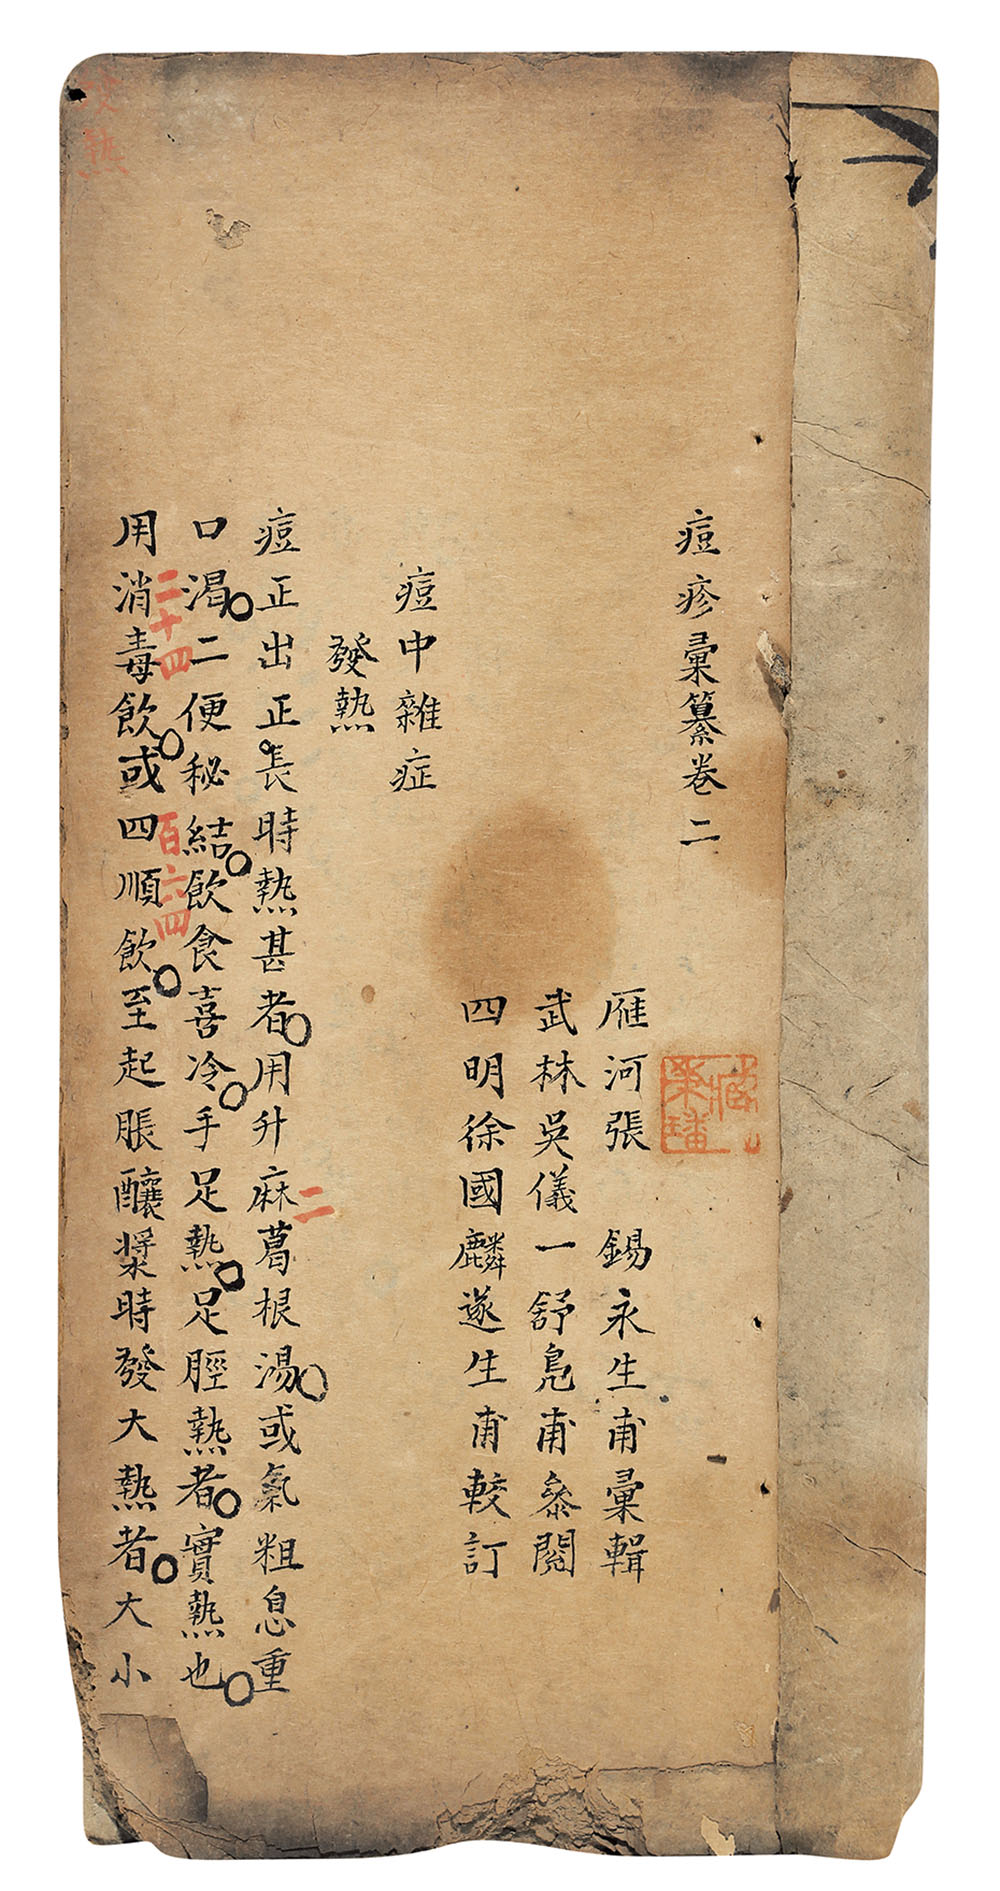 痘疹彙纂卷二
雁河張　錫永生甫彙輯
武林吳儀一舒鳧甫叅閱
四明徐國麟遂生甫較訂
痘中雜症
發熱
痘正出正長時熱甚者用升麻葛根湯或氣粗息重
二
口渴二便秘結飲食喜冷手足熱足脛熱者實熱也
用消毒飲或四順飲至起脹釀漿時發大熱者大小
二十四
百六四
發熱